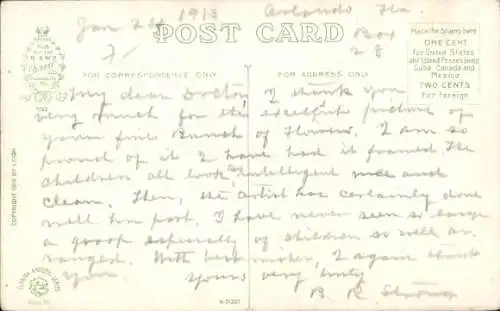 Jan 24 1913 Orlando Fla
POST CARD
Box
28
Place the Stamp here
ONE CENT
for United States
and Island Possessions
Cuba Canada and
Mexico
TWO CENTS
for Foreign
FOR CORRESPONDENCE ONLY
FOR ADDRESS ONLY
My dear Doctor, I thank you
very much for the excellent picture of
your fine Bunch of Flowers. I am so
proud of it I have had it framed. The
children all look so intelligent nice and
clean. Then, the artist has certainly done
well his part. I have never seen so large
a group especially of children so well ar-
ranged. With best wishes, I again thank
you. Yours very truly
B. R.